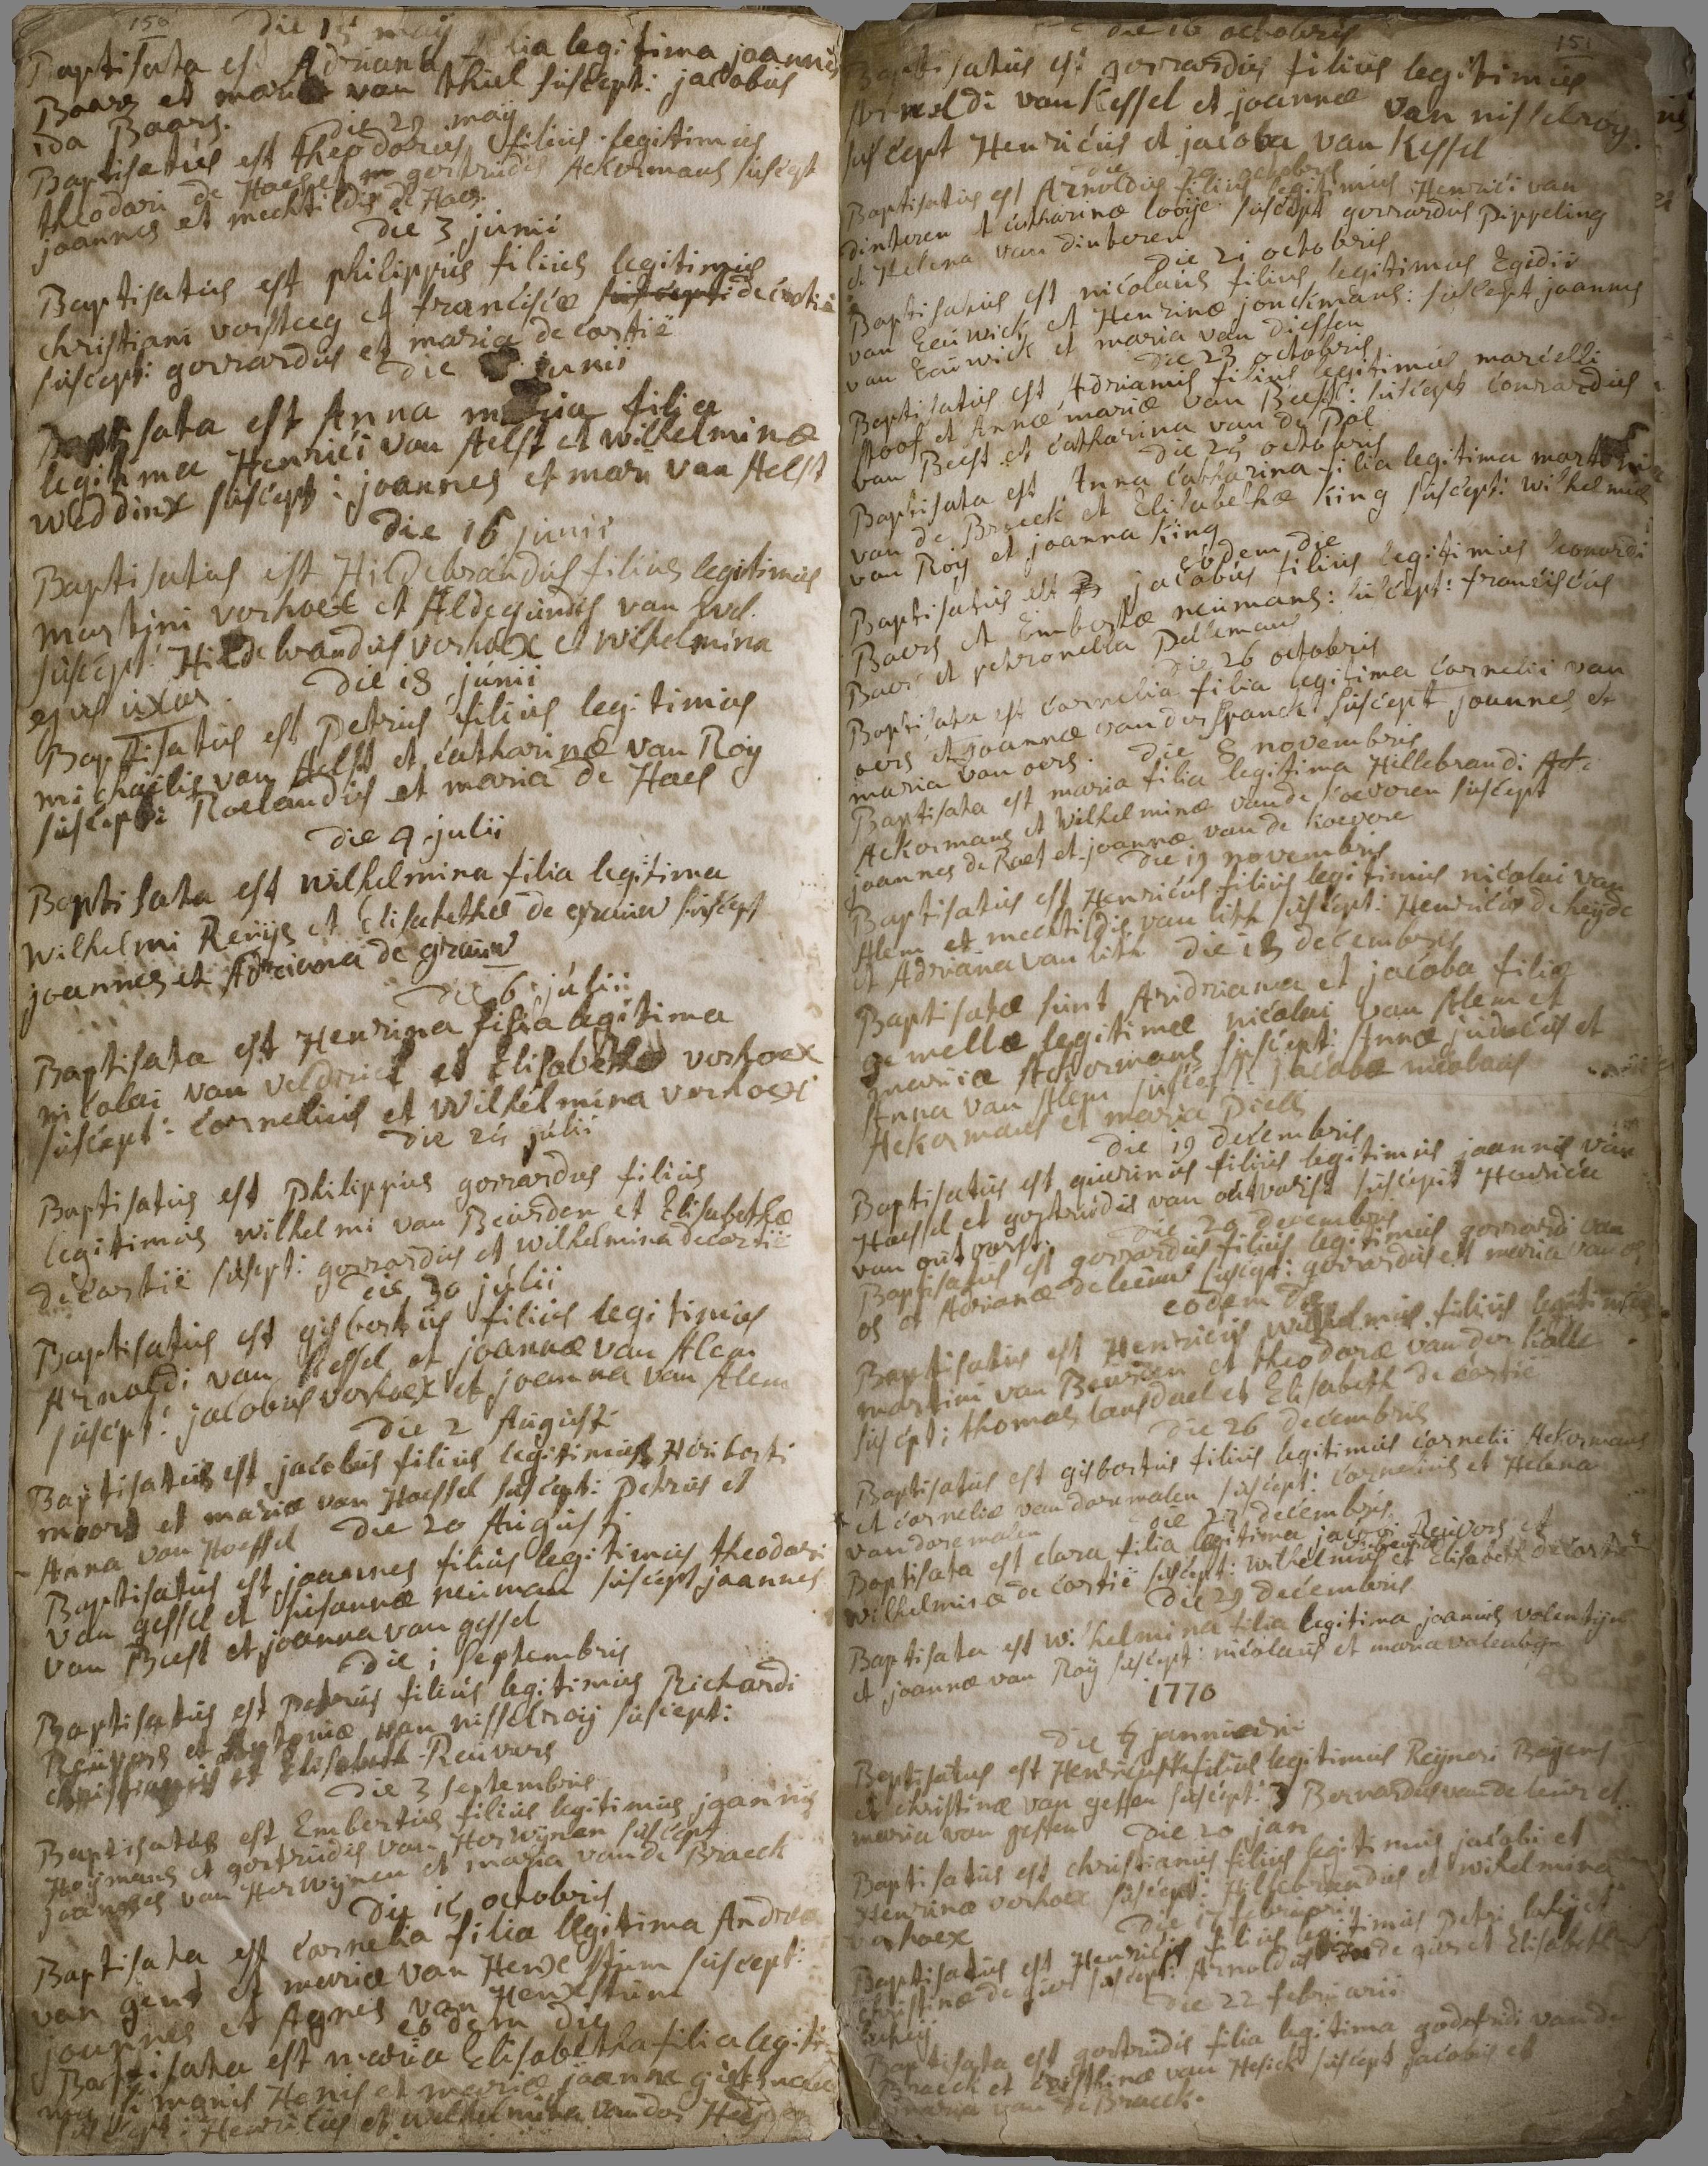 150
die 15 maij
Baptisata est Adriana filia legitima joannis
Baars et maria van thiel suscept: jacobus
ida Baars.
die 29 maij
Baptisatus est theodorus filius legitimus
theodori de Haes et gertrudis Ackermans suscept
joannes et mechtildis de Haes.
die 3 junii
Baptisatus est philippus filius legitimus
christiani versteeg et franciscæ suscepti de cortië
suscept: gerrardus et maria de cortië
die junii
Baptisata est Anna maria filia
legitima Henrici van Aelst et wilhelminæ
weddinx suscept: joannes et mari van Aelst
die 16 junii
Baptisatus est Hildebrandus filius legitimus
martini verhoex et Aldegundis van
suscept: Hildebrandus verhoex et wilhelmina
ejus uxor.
die 18 júnii
Baptisatus est Petrus filius legitimus
michaëlis van Aelst et catharinæ van Roij
suscepti Roelandus et maria de Haes
die 4 julii
Baptisata est wilhelmina filia legitima
wilhelmi Renijs et Elisabethæ de grauw suscept
joannes et Adriana de grauw
die 6 júlii
Baptisata est Henrina filia legitima
nicolai van veldriel et Elisabethæ verhoex
suscept: cornelius et wilhelmina verhoex
die 24 júlii
Baptisatus est philippus gerrardus filius
legitimus wilhelmi van Beurden et Elisabethæ
de cortië suscept: gerrardus et wilhelmina de cortië
die 30 júlii
Baptisatus est gisbertus filius legitimus
Arnoldi van Kessel et joannæ van Alem
suscept: jacobus verhoex et joanna van Alem
die 2 Augusti
Baptisatus est jacobus filius legitimus Heriberti
moors et mariæ van Haessel suscept: Petrus et
Anna van Hoessel die 20 Augusti
Baptisatus est joannes filius legitimus theodori
van gessel et susannæ neuman suscept joannes
van Beest et joanna van gessel
die 1 septembris
Baptisatus est Petrus filius legitimus Richardi
Reuvers et Antoniæ van nisselroij suscept:
christianus et Elisabeth Reuvers
die 3 septembris
Baptisatus est Embertus filius legitimus joannis
Hoijmans et gertrudis van Herwijnen suscept
joannes van Herwijnen et maria van de Braeck
die 15 octobris
Baptisata est cornelia filia legitima Andreæ
van gent et mariæ van Henxstum suscept:
joannes et Agnes van Henxstum
eodem die
Baptisata est maria Elisabetha filia legiti
ma simonis Henis et mariæ joannæ
suscept: Henricus et wilhelmina van der Heijden
151
die 16 octobris
Baptisatus est gerrardus filius legitimus
arnoldi van Kessel et joannæ van nisselroy.
suscept Henricus et jacoba van Kessel
die 20 octobris
Baptisatus est Arnoldus filius legitimus Henrici van
dinteren et catharinæ looije suscept gerrardus Pippeling
et Helena van dinteren
die 21 octobris
Baptisatus est nicolaus filius legitimus Egidii
van Eeuwick et Henrinæ jonckmans: suscept joannes
van Eeuwick et maria van diessen
die 23 octobris
Baptisatus est Adrianus filius legitimus marcelli
stoof et Annæ mariæ van Beest: suscept conrardus
van Beest et catharina van de Pol
die 25 octobris
Baptisata est Anna catharina filia legitima martini
van de Braeck et Elisabethæ king suscept: wilhelmus
van Roij et joanna king
eodem die
Baptisatus est jacobus filius legitimus leonardi
Baers et Embertæ neumans: suscept: franciscus
Baers et petronella Pelleman
die 26 octobris
Baptisata est cornelia filia legitima cornelii van
oers et joannæ van der spanck suscept joannes et
maria van oers. die 8 novembris
Baptisata est maria filia legitima Hillebrandi
Ackermans et wilhelminæ van de koevoren suscept
joannes de Raet et joannæ van de koevore
die 19 novembris
Baptisatus est Henricus filius legitimus nicolai van
Alem et mechtildis van lith suscept: Henricus de heijde
et Adriana van lith die 18 decembris
Baptisatæ sunt Aridriana et jacoba filiæ
gemellæ legitimæ nicolai van Alem et
mariæ Ackermans suscept: Annæ judocus et
Anna van Alem suscept: jacobæ nicolaus
Ackermans et maria Piels
die 19 decembris
Baptisatus est quirinus filius legitimus joannis van
Haessel et gertrudis van outvorst suscepit Henrica
van outvorst.
die 20 decembris
Baptisatus est gerrardus filius legitimus gerrardi van
os et Adrianæ de leeuw suscept: gerrardus et maria van os
eodem die
Baptisatus est Henricus wilhelmus filius legitimus
martini van Beurden et theodoræ van der kolle
suscept: thomas lansdael et Elisabeth de cortië
die 26 decembris
Baptisatus est gisbertus filius legitimus cornelii Ackermans
et corneliæ van doremalen suscept: cornelius et Helena
van doremalen die 27 decembris
Baptisata est clara filia legitima jacobi Reuvers et
wilhelminæ de cortië suscept: wilhelmus et Elisabeth de cortië
die 29 decembris
Baptisata est wilhelmina filia legitima joannis valentijn
et joannæ van Roij suscept: nicolaus et maria valentijn
1770
die 6 jannuarii
Baptisatus est Henricus filius legitimus Reijneri Beijens
et christinæ van gessen suscept: Bernardus van de leur et
maria van gessen die 20 jan
Baptisatus est christianus filius legitimus jacobi et
Henrinæ verhoex suscept: Hillebrandus et wihelmina
verhoex die 17 februarii
Baptisatus est Henricus filius legitimus Petri et
christinæ de suscept: Arnoldus de et Elisabeth
die 22 februarii
Baptisata est gertrudis filia legitima godefridi van de
Braeck et cristhinæ van Hesick suscept jacobus et
maria van de Braeck.